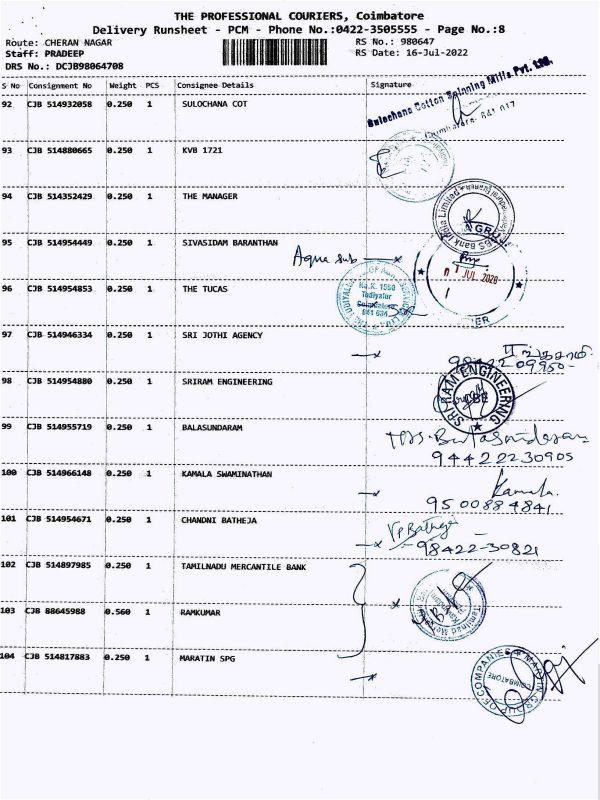 THE PROFESSIONAL COURIERS, Coimbatore
Delivery Runsheet - PCM - Phone No.:0422-3505555 - Page No.:8
Route: CHERAN NAGAR RS No.: 980647
Staff: PRADEEP RS Date: 16-Jul-2022
DRS No.: DCJB98064708
S No Consignment No Weight PCS Consignee Details Signature
92 CJB 514932058 0.250 1 SULOCHANA COT
Sulochana Cotton Spinning Mills Pvt. Ltd.
Coimbatore- 641 017
93 CJB 514880665 0.250 1 KVB 1721
94 CJB 514352429 0.250 1 THE MANAGER
95 CJB 514954449 0.250 1 SIVASIDAM BARANTHAN
Aqua sub
JUL 2020
96 CJB 514954853 0.250 1 THE TUCAS
No.K. 1550
Tudiyalur
Coimbatore
641 034
97 CJB 514946334 0.250 1 SRI JOTHI AGENCY
98422 09950
98 CJB 514954880 0.250 1 SRIRAM ENGINEERING
SRIRAM ENGINEERING
CBE
99 CJB 514955719 0.250 1 BALASUNDARAM
94422230905
100 CJB 514966148 0.250 1 KAMALA SWAMINATHAN
Kamala
9500884841
101 CJB 514954671 0.250 1 CHANDNI BATHEJA
VpBatheja
98422-30821
102 CJB 514897985 0.250 1 TAMILNADU MERCANTILE BANK
103 CJB 88645988 0.560 1 RAMKUMAR
104 CJB 514817883 0.250 1 MARATIN SPG
MARTIN GROUP OF COMPANIES
COIMBATORE